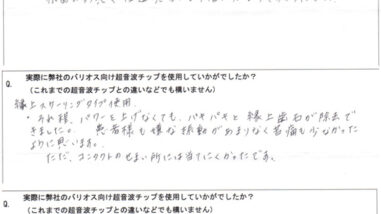 Q.
実際に弊社のバリオス向け超音波チップを使用していかがでしたか?
(これまでの超音波チップとの違いなどでも構いません)
縁上スケーリングタイプ使用
・それ程、パワーを上げなくても、バキバキと縁上歯石が除去で
きました。患者様も嫌な振動があまりなく苦痛も少なかった
ように思います。
ただ、コンタクトのせまい所には当てにくかったです。
Q.
実際に弊社のバリオス向け超音波チップを使用していかがでしたか?
(これまでの超音波チップとの違いなどでも構いません)